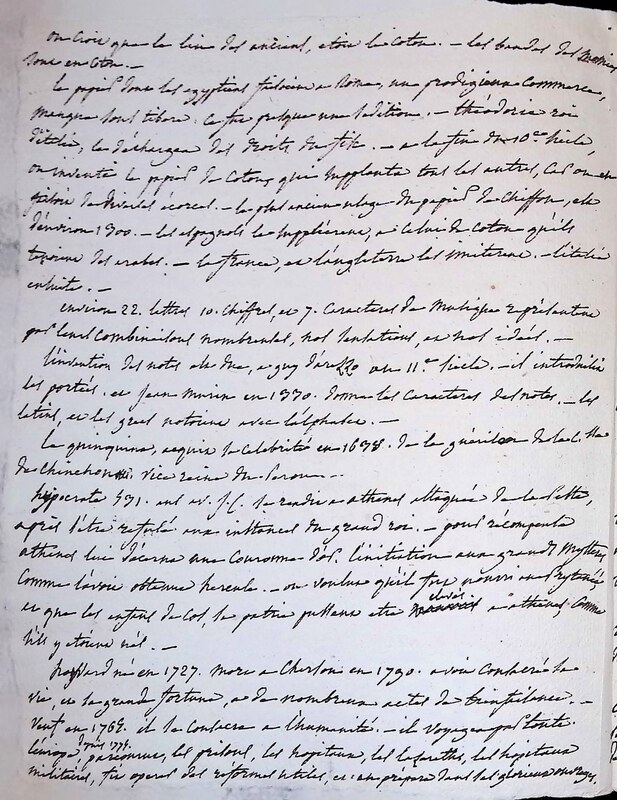 on croit que le lin des anciens, etoit le coton. — les bandes des momies
sont en coton. —
le papier dont les egyptiens faisoient a Rome, un prodigieux commerce,
manqua sous tibere. ce fut presque une sedition. — theodoric roi
d'italie, le dechargea des droits du fisc. — a la fin du 10me siecle,
on inventa le papier de coton, qui supplanta tous les autres, car on en
faisoit de diverses ecorces. — le plus ancien usage du papier de chiffon, est
d'environ 1300. — les espagnols le suppléerent, a celui de coton qu'ils
tenoient des arabes. — la france, et l'angleterre les imiterent. — l'italie
ensuite. —
environ 22. lettres 10. chiffres, et 7. caracteres de musique représentent
par leurs combinaisons nombreuses, nos sensations, et nos idées. —
l'invention des notes est due, a guy d'arezzo au 11me siecle. — il introduisit
les portées. et jean murin en 1330. donna les caracteres des notes. — les
latins, et les grecs notoient avec l'alphabet. —
le quinquina, acquit sa celebrité en 1638. de la guérison de la C.sse
de chinchon vice reine du perou. —
hypocrate 431. ans av. J.C. se rendit a athenes attaquée de la peste,
après s'etre refusé aux instances du grand roi. — pour récompense
athenes lui decerna une couronne d'or. l'initiation aux grands mysteres,
comme l'avoit obtenue hercule. — on voulut qu'il fut nourri au prytanée,
et que les enfans de cos, sa patrie pussent etre elevés a athenes, comme
s'ils y etoient nés. —
howard né en 1727. mort a cherson en 1790. avoit consacré sa
vie, et sa grande fortune, a de nombreux actes de bienfaisance. —
veuf en 1765. il se consacra a l'humanité. — il voyagea par toute
l'europe, puis 1774. parcourut, les prisons, les hopitaux, les lazareths, les hopitaux
militaires, fit operer des réformes utiles, et en prepara dans ses glorieux ouvrages,